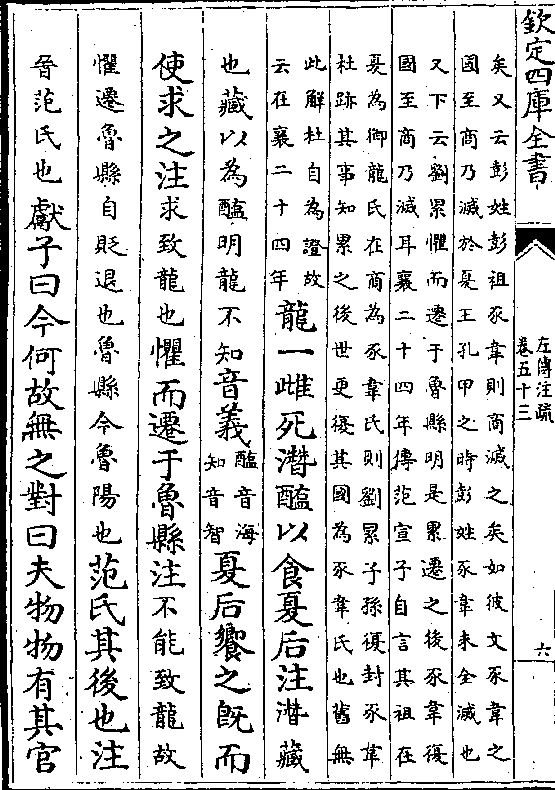 欽定四庫全書
左傳注疏
卷五十三
六
矣又云彭姓彭祖豕韋則商滅之矣如彼文豕韋之
國至商乃滅於夏王孔甲之時彭姓豕韋未全滅也
又下云劉累懼而遷于魯縣明是累遷之後豕韋復
國至商乃滅耳襄二十四年傳范宣子自言其祖在
夏為御龍氏在商為豕韋氏則劉累子孫復封豕韋
杜跡其事知累之後世更復其國為豕韋氏也舊無
此解杜自為證故
云在襄二十四年
龍一雌死潛醢以食夏后注潛藏
也藏以為醢明龍不知音義
醢音海
知音智
夏后饗之既而
使求之注求致龍也懼而遷于魯縣注不能致龍故
懼遷魯縣自貶退也魯縣今魯陽也范氏其後也注
晉范氏也獻子曰今何故無之對曰夫物物有其官